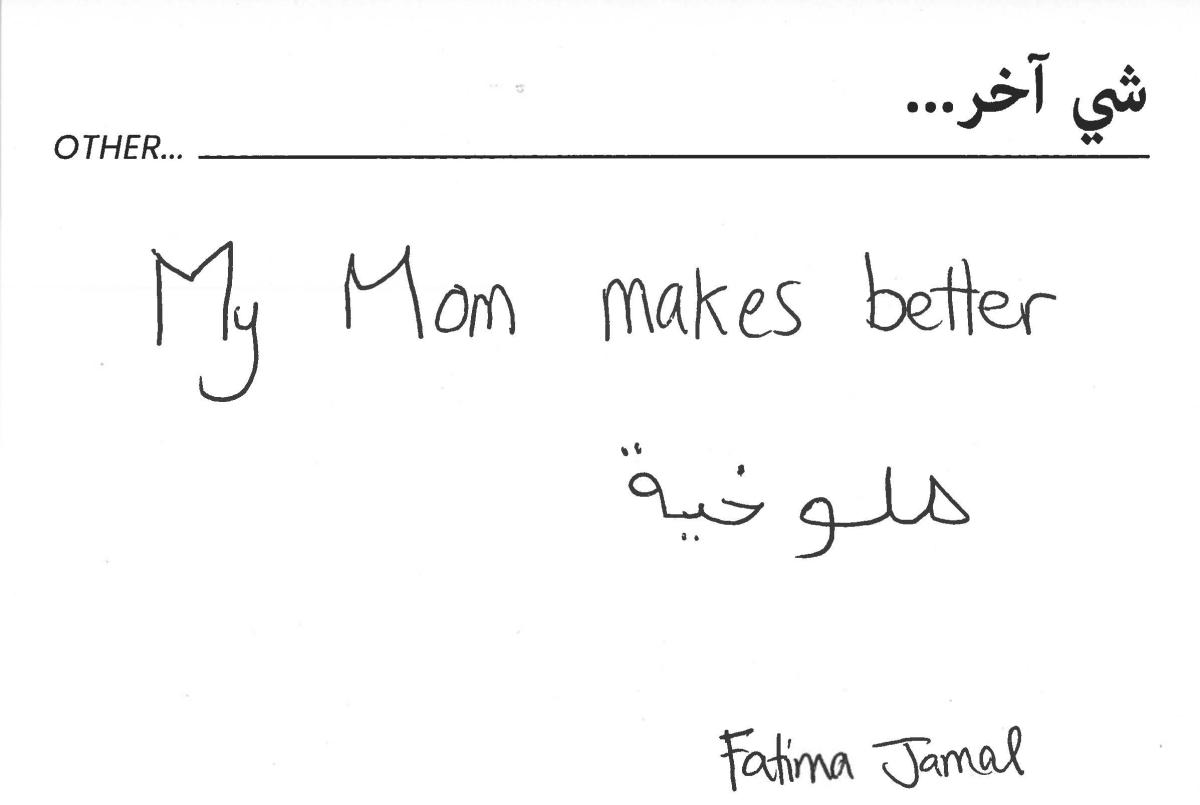 شي آخر...
OTHER...
My Mom makes better
ملوخية
Fatima Jamal